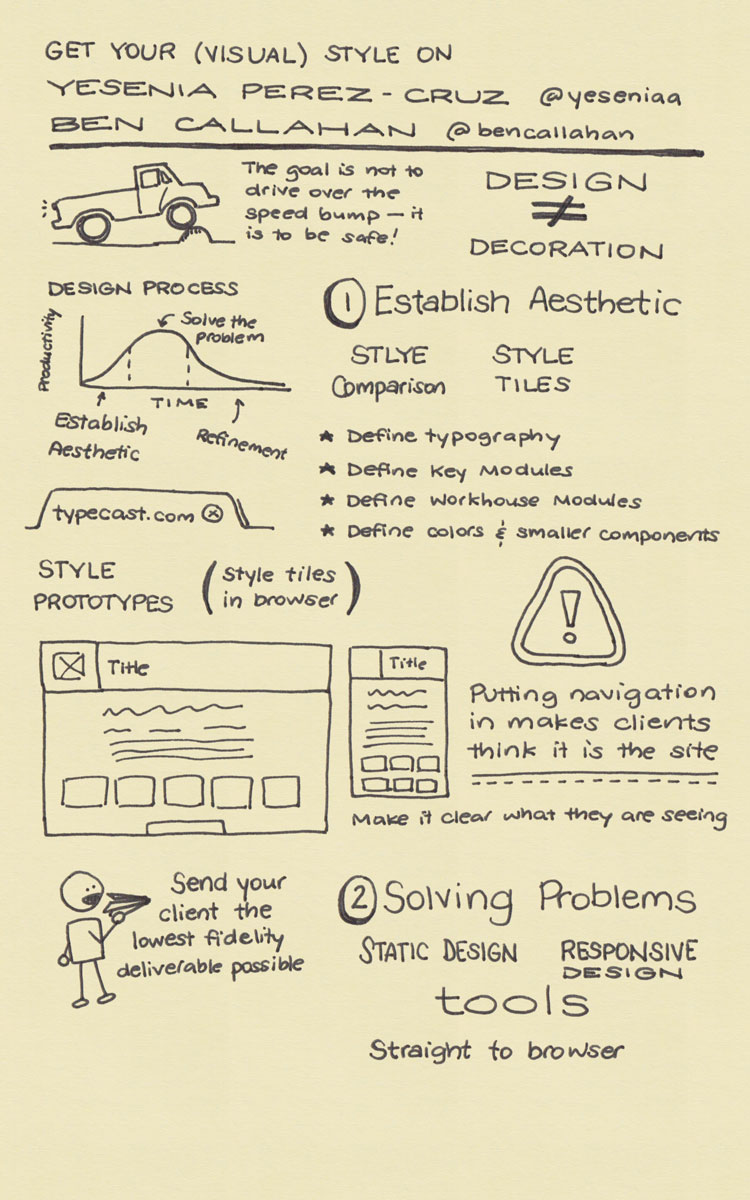 GET YOUR (VISUAL) STYLE ON
YESENIA PEREZ-CRUZ @yeseniaa
BEN CALLAHAN @bencallahan
The goal is not to
drive over the
speed bump — it
is to be safe!
DESIGN
≠
DECORATION
DESIGN PROCESS
Productivity
Solve the
problem
TIME
Establish
Aesthetic
Refinement
typecast.com ⓧ
1 Establish Aesthetic
STLYE
Comparison
STYLE
TILES
★ Define typography
★ Define Key Modules
★ Define Workhouse Modules
★ Define colors & smaller components
STYLE
PROTOTYPES
(Style tiles
in browser)
Title
Title
!
Putting navigation
in makes clients
think it is the site
Make it clear what they are seeing
Send your
client the
lowest fidelity
deliverable possible
2 Solving Problems
STATIC DESIGN
RESPONSIVE
DESIGN
tools
Straight to browser